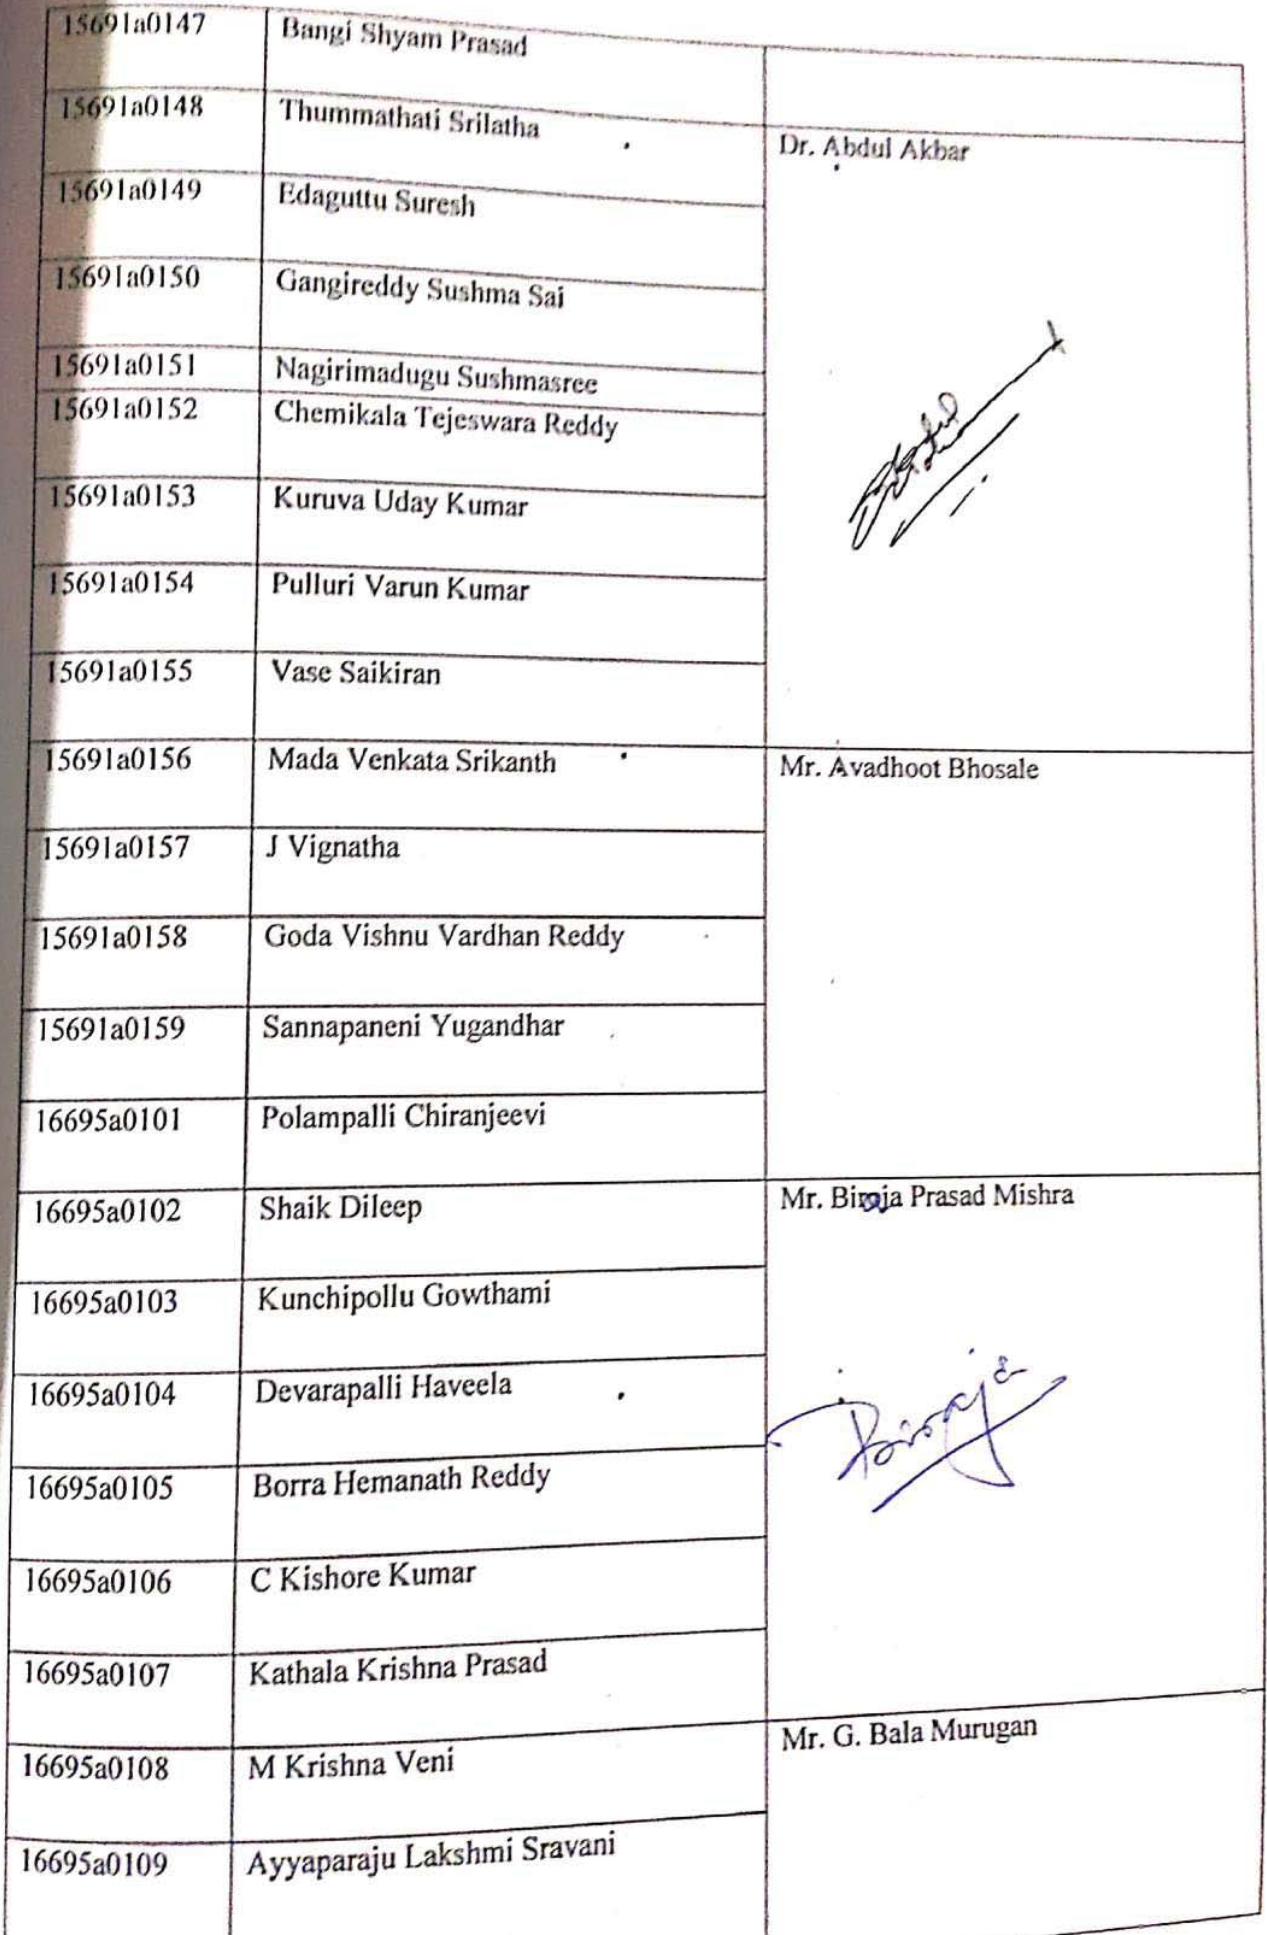 15691a0147 Bangi Shyam Prasad
15691a0148 Thummathati Srilatha Dr. Abdul Akbar
15691a0149 Edaguttu Suresh
15691a0150 Gangireddy Sushma Sai
15691a0151 Nagirimadugu Sushmasree
15691a0152 Chemikala Tejeswara Reddy
15691a0153 Kuruva Uday Kumar
15691a0154 Pulluri Varun Kumar
15691a0155 Vase Saikiran
15691a0156 Mada Venkata Srikanth Mr. Avadhoot Bhosale
15691a0157 J Vignatha
15691a0158 Goda Vishnu Vardhan Reddy
15691a0159 Sannapaneni Yugandhar
16695a0101 Polampalli Chiranjeevi
16695a0102 Shaik Dileep Mr. Biraja Prasad Mishra
16695a0103 Kunchipollu Gowthami
16695a0104 Devarapalli Haveela
Biraja
16695a0105 Borra Hemanath Reddy
16695a0106 C Kishore Kumar
16695a0107 Kathala Krishna Prasad
16695a0108 M Krishna Veni Mr. G. Bala Murugan
16695a0109 Ayyaparaju Lakshmi Sravani